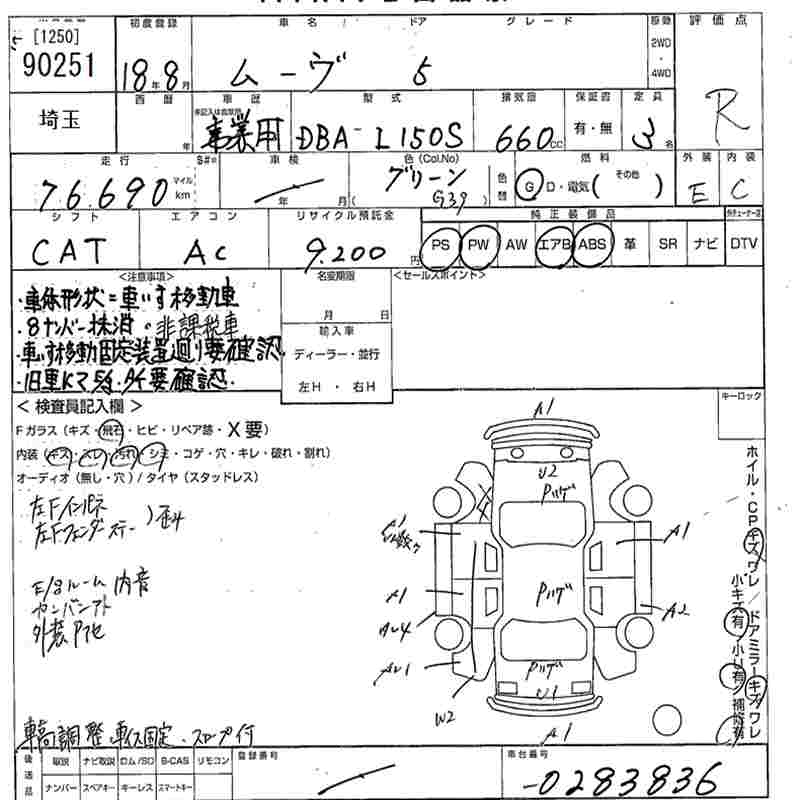 [1250]
90251
初度登録
車名 / ドア
グレード
原動
2WD
・
4WD
評価点
18年8月
ムーヴ 5
R
埼玉
西暦
年
車歴
事業用
型式
DBA-L150S
排気量
660cc
保証書
有・無
定員
3名
走行
76,690
マイル
km
S#=
車検
年 月
色(Col.No)
グリーン
(G39)
色替
燃料
G D・電気( その他 )
外装
E
内装
C
シフト
CAT
エアコン
AC
リサイクル預託金
9,200円
純正装備品
PS PW AW エアB ABS 革 SR ナビ DTV
<注意事項>
・車体形状=車いす移動車
・8ナンバー抹消。非課税車
・車いす移動固定装置廻り要確認
名変期限
月 日
輸入車
ディーラー・並行
左H ・ 右H
<セールスポイント>
<検査員記入欄>
Fガラス(キズ・飛石・ヒビ・リペア跡・X要)
内装(キズ・スレ・汚れ・シミ・コゲ・穴・キレ・破れ・割れ)
オーディオ(無し・穴)/タイヤ(スタッドレス)
左Fインパネ
左Fフェンダーステー )歪み
E/gルーム内音
外装
キーロック
A1
U2
Pハゲ
A1
A1
Pハゲ
A2
Pハゲ
U1
W2
A1
ホイル・CPキズワレ/ドアミラーキズワレ
小キズ有/小U有/補修有
車高調整 車イス固定、スロープ付
後送品
取説 ナビ取説 ロム/SD B-CAS リモコン
ナンバー スペアキー キーレス スマートキー
登録番号
車台番号
-0283836